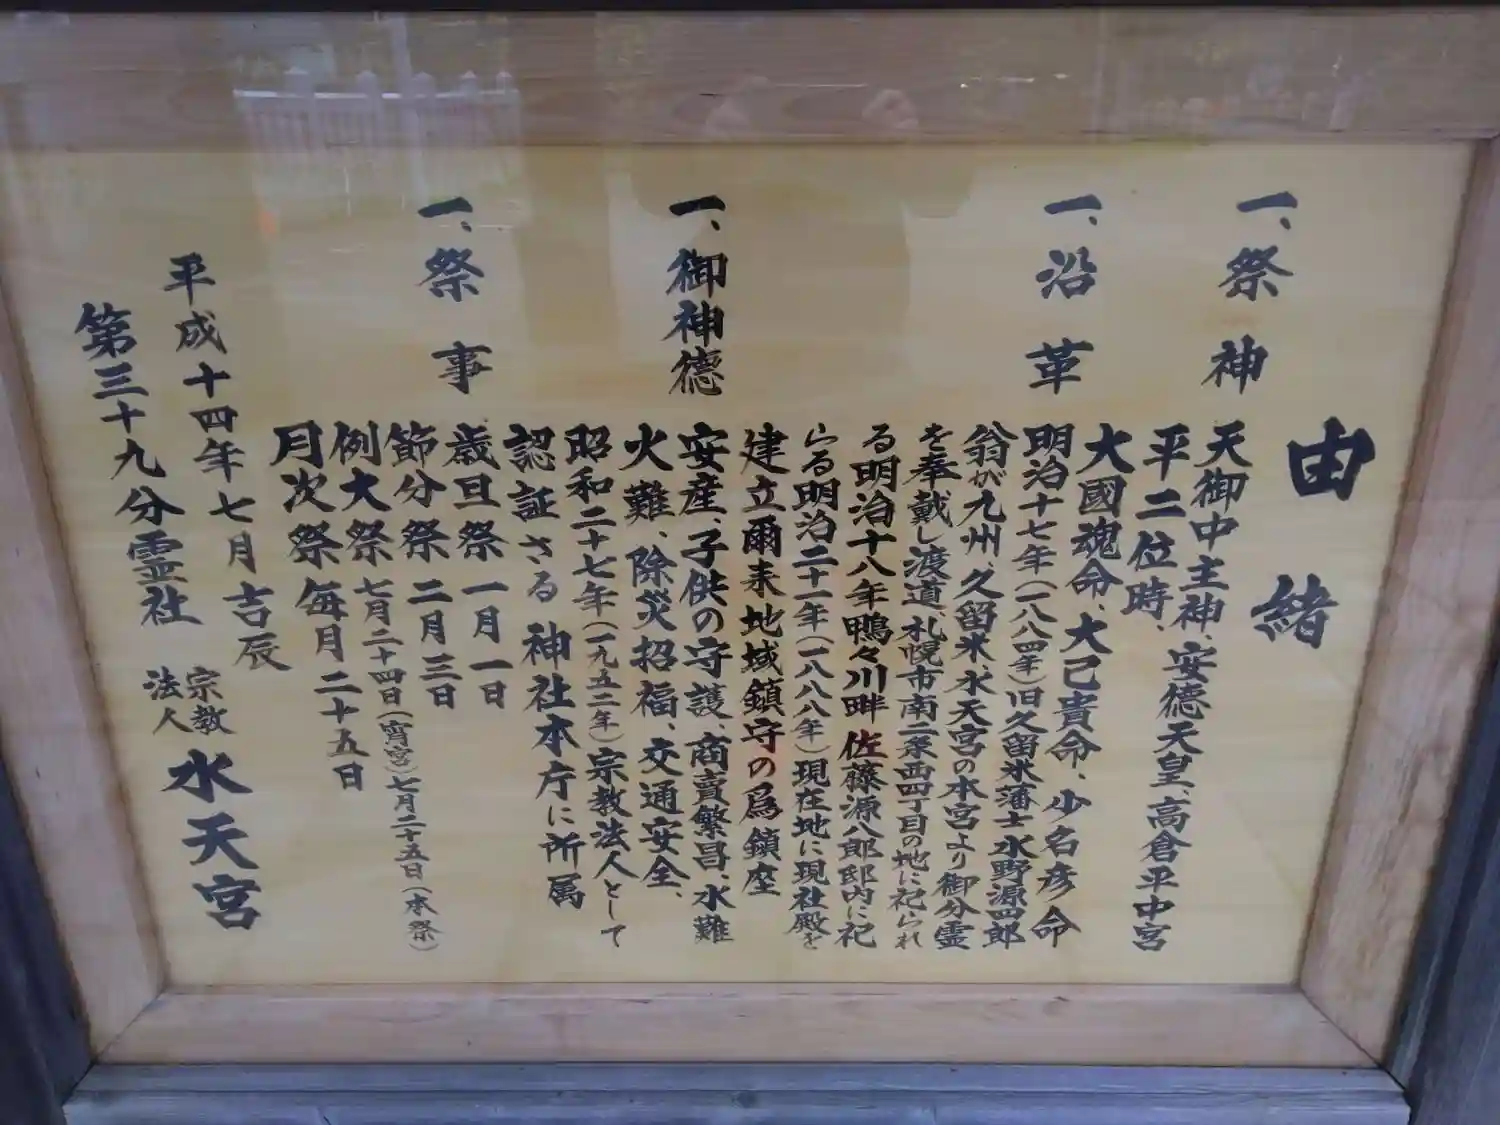 由緒
一、祭神
天御中主神、安徳天皇、高倉平中宮
平二位時、
大國魂命、大己貴命、少名彦命
一、沿革
明治十七年(一八八四年)旧久留米藩士水野源四郎
翁が九州、久留米、水天宮の本宮より御分霊
を奉戴し渡道、札幌市南二条西四丁目の地に祀られ
る明治十八年鴨々川畔佐藤源八郎邸内に祀
らる明治二十一年(一八八八年)現在地に現社殿を
建立爾来地域鎮守の為鎮座
一、御神徳
安産、子供の守護、商売繁昌、水難
火難、除災招福、交通安全、
昭和二十七年(一九五二年)宗教法人として
認証さる 神社本庁に所属
一、祭事
歳旦祭 一月一日
節分祭 二月三日
例大祭 七月二十四日(宵宮)七月二十五日(本祭)
月次祭 毎月二十五日
平成十四年七月吉辰
第三十九分霊社 宗教法人 水天宮